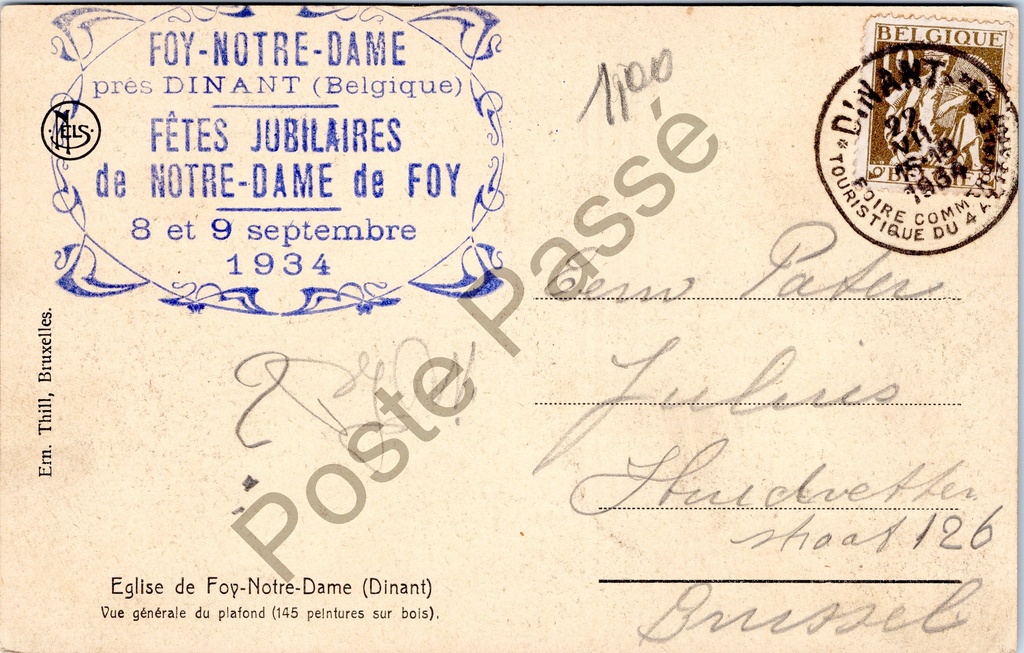 FOY-NOTRE-DAME
près DINANT (Belgique)
FÊTES JUBILAIRES
de NOTRE-DAME de FOY
8 et 9 septembre
1934
NELS
Ern. Thill, Bruxelles.
1,00
BELGIQUE
DINANT
FOIRE COMM
TOURISTIQUE DU 4 AU
1934
Eerw Pater
Julius
Huidvetter
straat 126
Brussel
Eglise de Foy-Notre-Dame (Dinant)
Vue générale du plafond (145 peintures sur bois).
Poste Passé